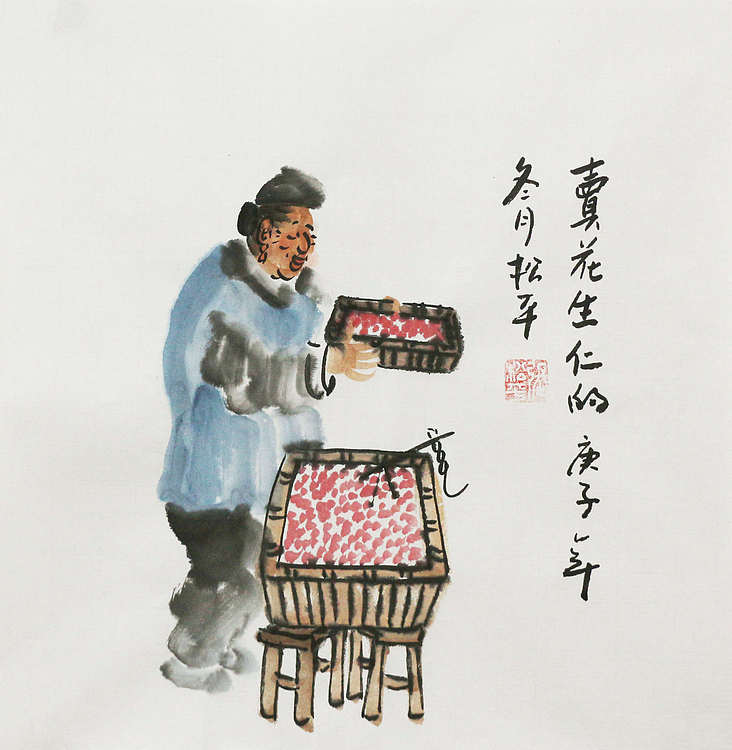 賣花生仁的 庚子年
冬月松平